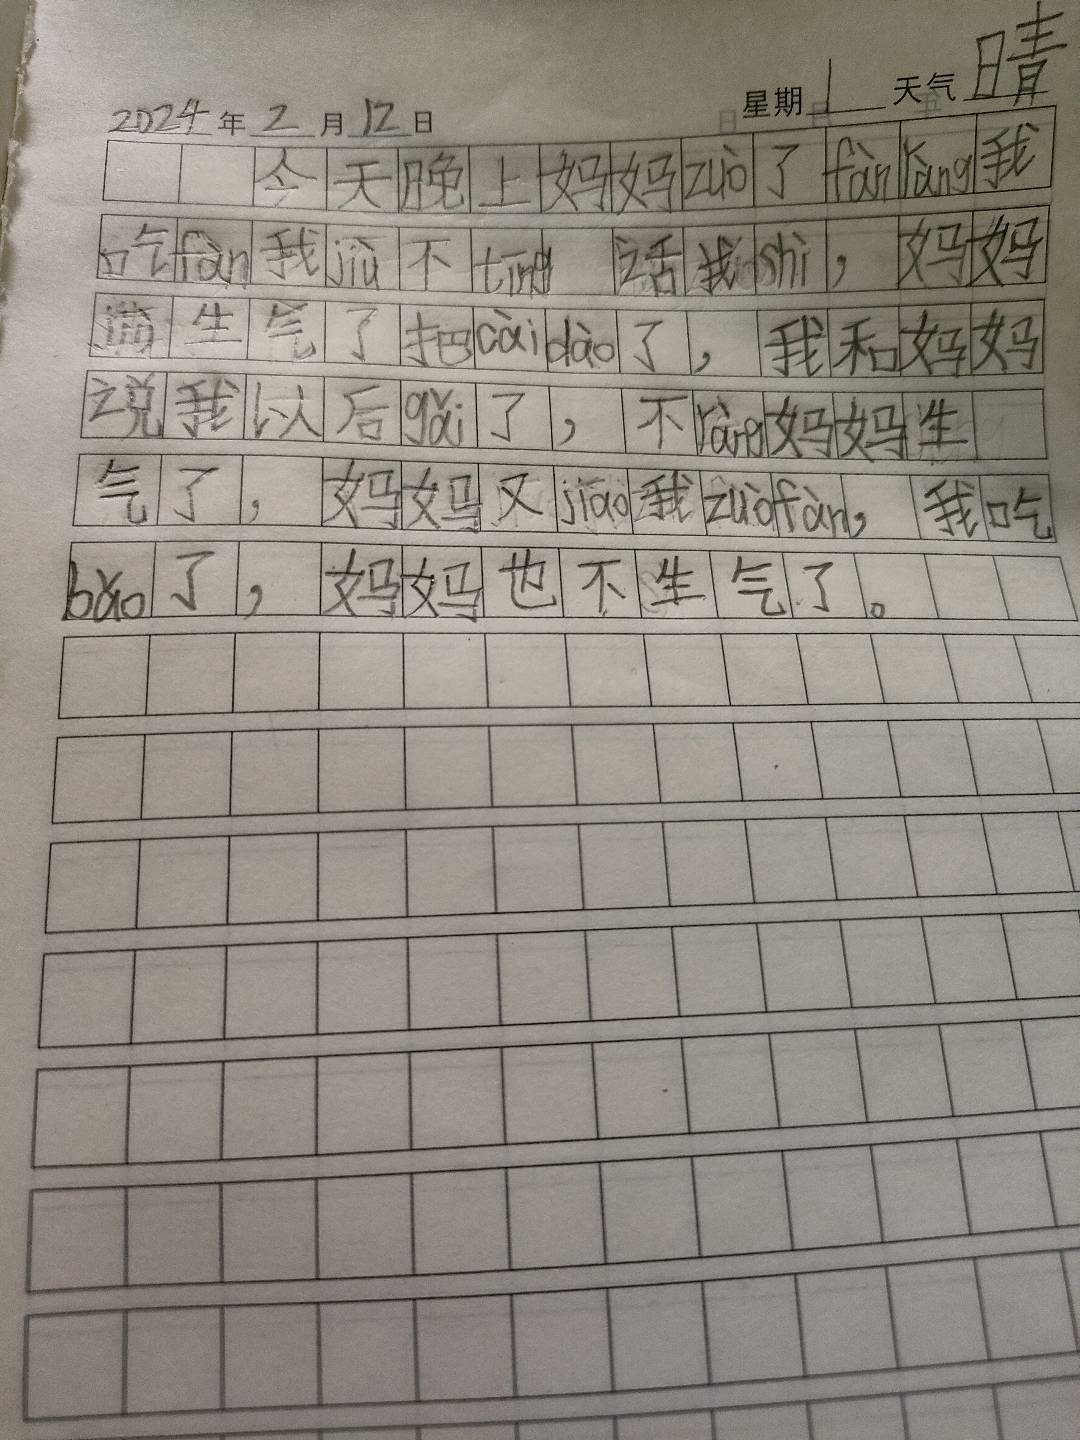 星期 1 天气 晴
2024 年 2 月 12 日
今天晚上妈妈zuò了fànràng我
吃fàn我jiù不tīng 话我shì，妈妈
生气了把càidào了，我和妈妈
说我以后gǎi了，不ràng妈妈生
气了，妈妈又jiāo我zuòfàn，我吃
bǎo了，妈妈也不生气了。